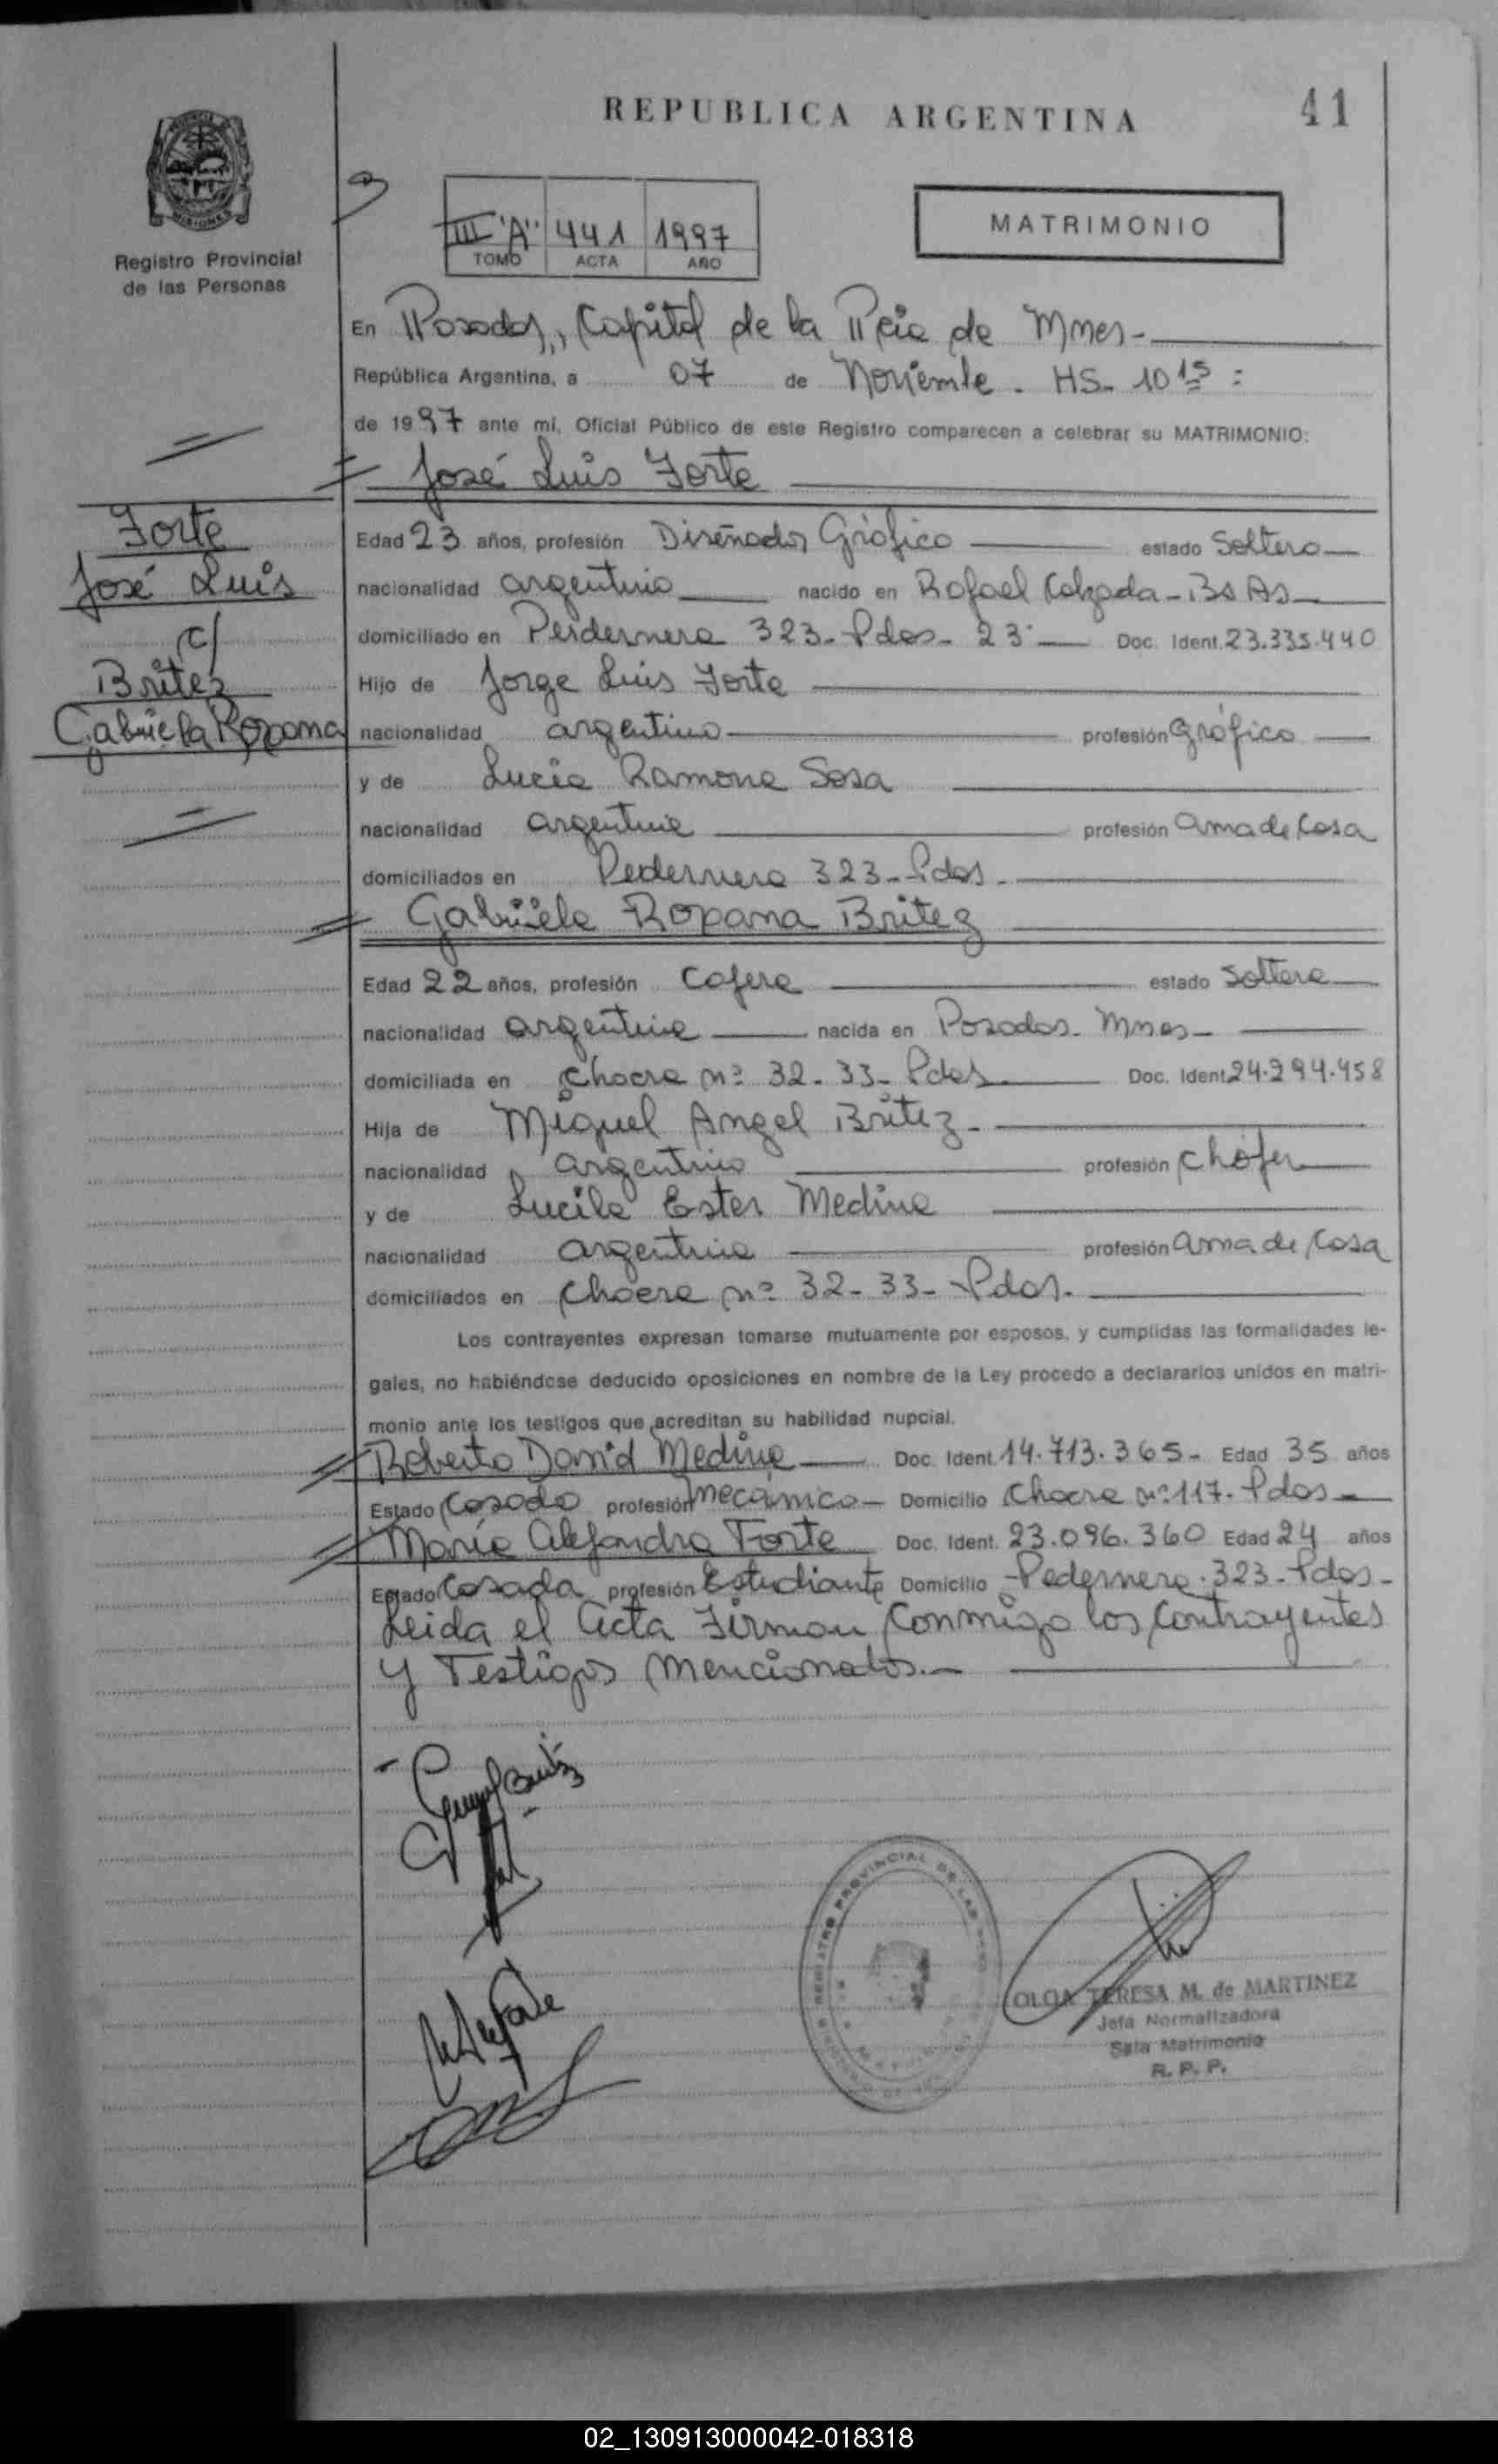 REPUBLICA ARGENTINA
41
MISIONES
Registro Provincial
de las Personas
III "A" 441 1997
TOMO ACTA AÑO
MATRIMONIO
En Posadas, Capital de la Pcia de Mnes-
República Argentina, a 07 de Noviembre . HS. 10 15 :
de 1997 ante mí, Oficial Público de este Registro comparecen a celebrar su MATRIMONIO:
José Luis Forte
Forte
José Luis
c/
Britez
Gabriela Roxana
Edad 23 años, profesión Diseñador Gráfico estado Soltero
nacionalidad argentino nacido en Rafael Calzada - Bs As
domiciliado en Perdernera 323 - Pdas - 23 Doc. Ident. 23.335.440
Hijo de Jorge Luis Forte
nacionalidad argentino profesión Gráfico
y de Lucia Ramona Sosa
nacionalidad argentina profesión ama de Casa
domiciliados en Pedernera 323 - Pdas.
Gabriela Roxana Britez
Edad 22 años, profesión Cajera estado Soltera
nacionalidad argentina nacida en Posadas - Mnes
domiciliada en Chacra nº 32 - 33 - Pdas Doc. Ident. 24.294.958
Hija de Miguel Angel Britez
nacionalidad argentino profesión chófer
y de Lucila Ester Medina
nacionalidad argentina profesión ama de Casa
domiciliados en Chacra nº 32 - 33 - Pdas.
Los contrayentes expresan tomarse mutuamente por esposos, y cumplidas las formalidades le-
gales, no habiéndose deducido oposiciones en nombre de la Ley procedo a declararlos unidos en matri-
monio ante los testigos que acreditan su habilidad nupcial.
Roberto David Medina Doc. Ident. 14.713.365 - Edad 35 años
Estado Casado profesión mecánico - Domicilio Chacra nº 117 - Pdas
María Alejandra Forte Doc. Ident. 23.096.360 Edad 24 años
Estado Casada profesión Estudiante Domicilio Pedernera . 323 - Pdas -
Leida el acta Firman Conmigo los Contrayentes
y Testigos Mencionados.-
OLGA TERESA M. de MARTINEZ
Jefa Normalizadora
Sala Matrimonio
R. P. P.
02_130913000042-018318